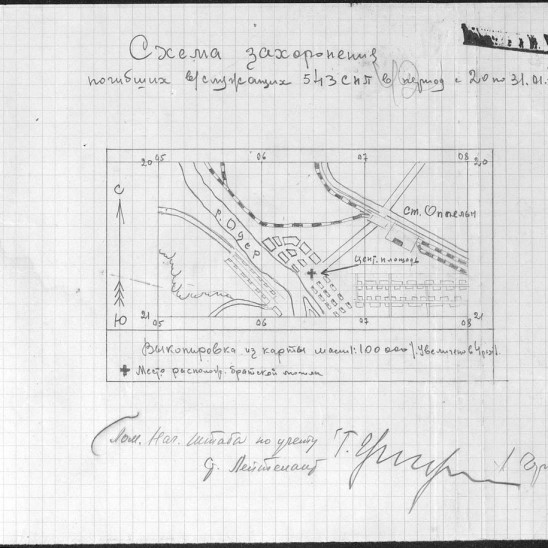 Схема захоронения
погибших в/служащих 543 сп в период с 20 по 31.01.
20 05 06 07 08 20
С
р. Одер
ст. Оппельн
Цент. площадь
Ю
21 05 06 07 08 21
Выкопировка из карты масш 1:100000 /увеличено в 4 раз/.
Место располож. братской могилы
Пом. Нач. штаба по учету
Лейтенант